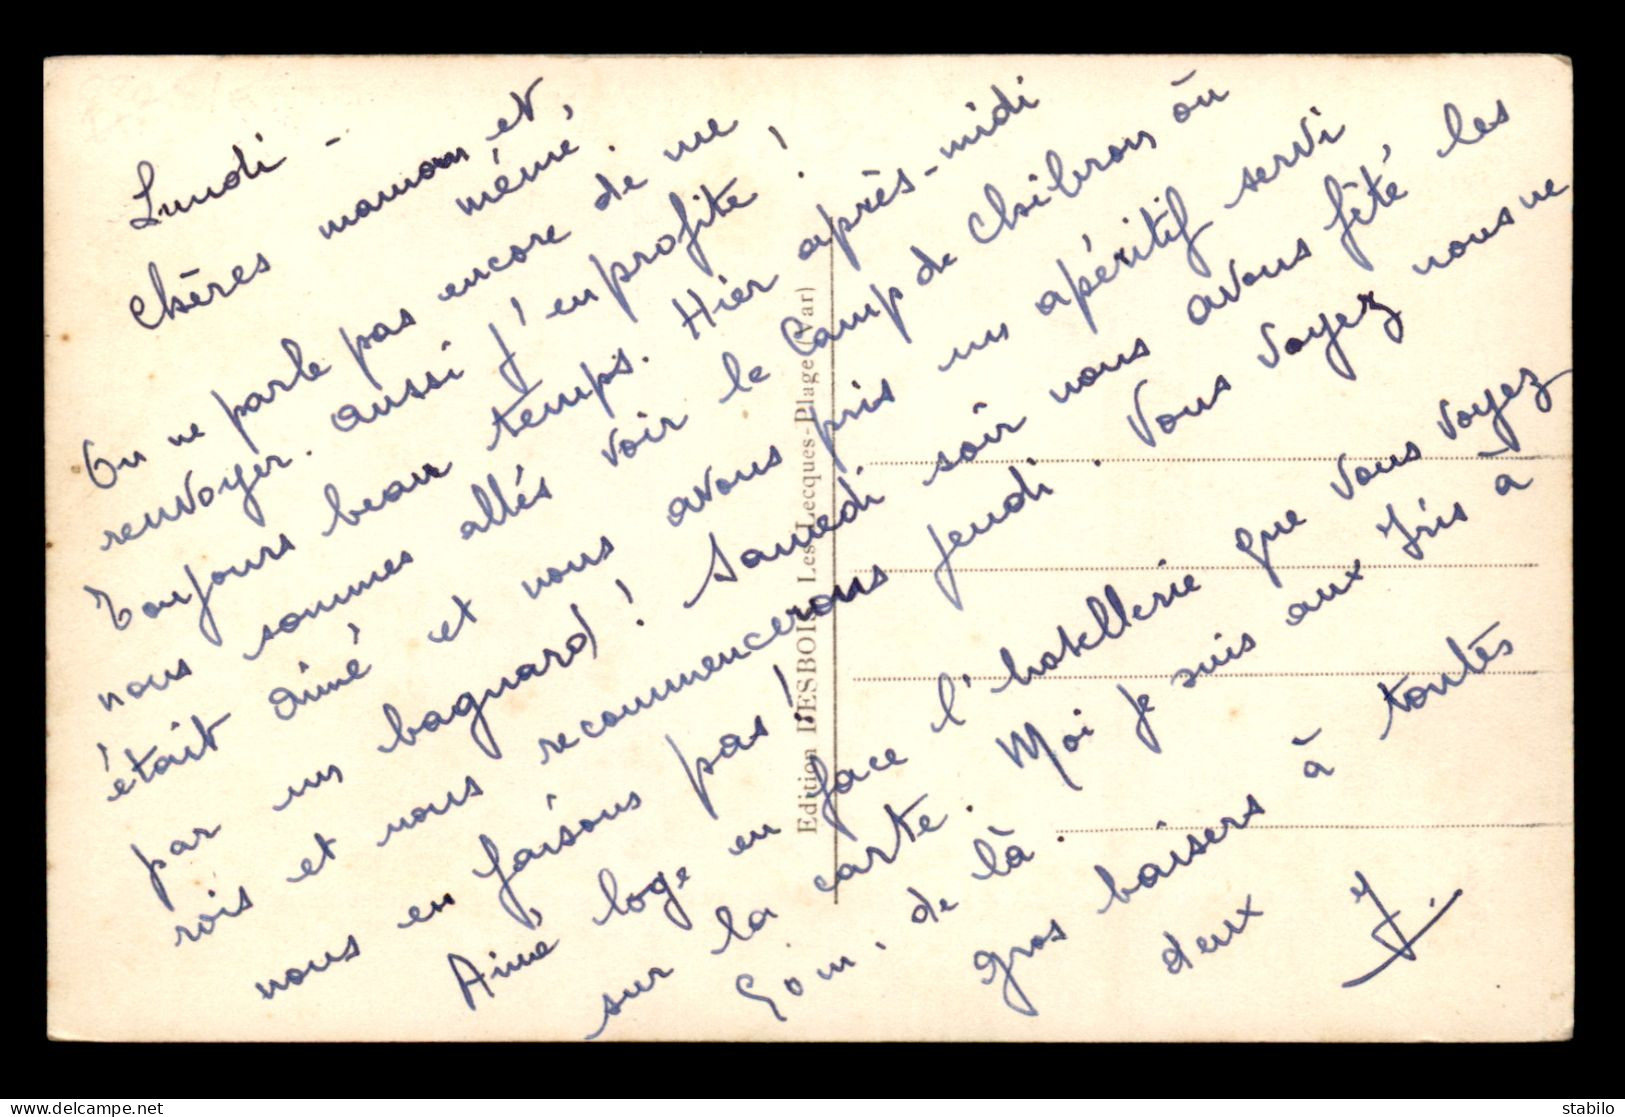 Lundi -
Chères maman et
mémé,
On ne parle pas encore de me
renvoyer. aussi j'en profite !
Toujours beau temps. Hier après-midi
nous sommes allés voir le Camp de Chibron où
était Aimé et nous avons pris un apéritif servi
par un bagnard ! Samedi soir nous avons fêté les
rois et nous recommencerons jeudi. Vous voyez nous ne
nous en faisons pas !
Aimé loge en face l'hotellerie que vous voyez
sur la carte. Moi je suis aux Iris à
50 m. de là.
Gros baisers à toutes
deux
J.
Edition DESBOIS, Les Lecques-Plage (Var)
stabilo